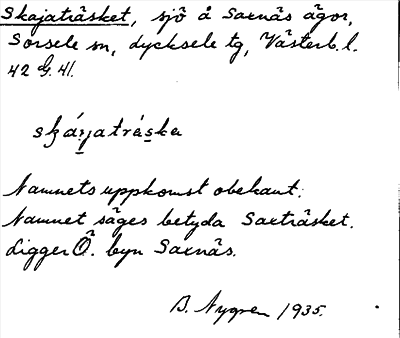 Skajaträsket, sjö å Saxnäs ägor,
Sorsele sn, Lycksele tg, Västerb. l.
42 G. 41.
skájatráska
Namnets uppkomst obekant.
Namnet säges betyda Saxträsket.
Ligger Ö. byn Saxnäs.
B. Nygren 1935.